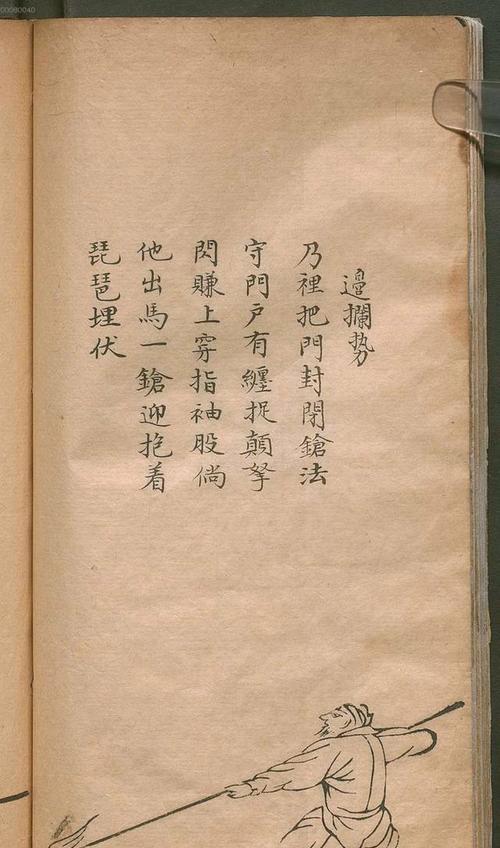 邉攔势
乃裡把門封閉鎗法
守門戸有纏捉顛拏
閃賺上穿指袖股倘
他出馬一鎗迎抱着
琵琶埋伏
00080040